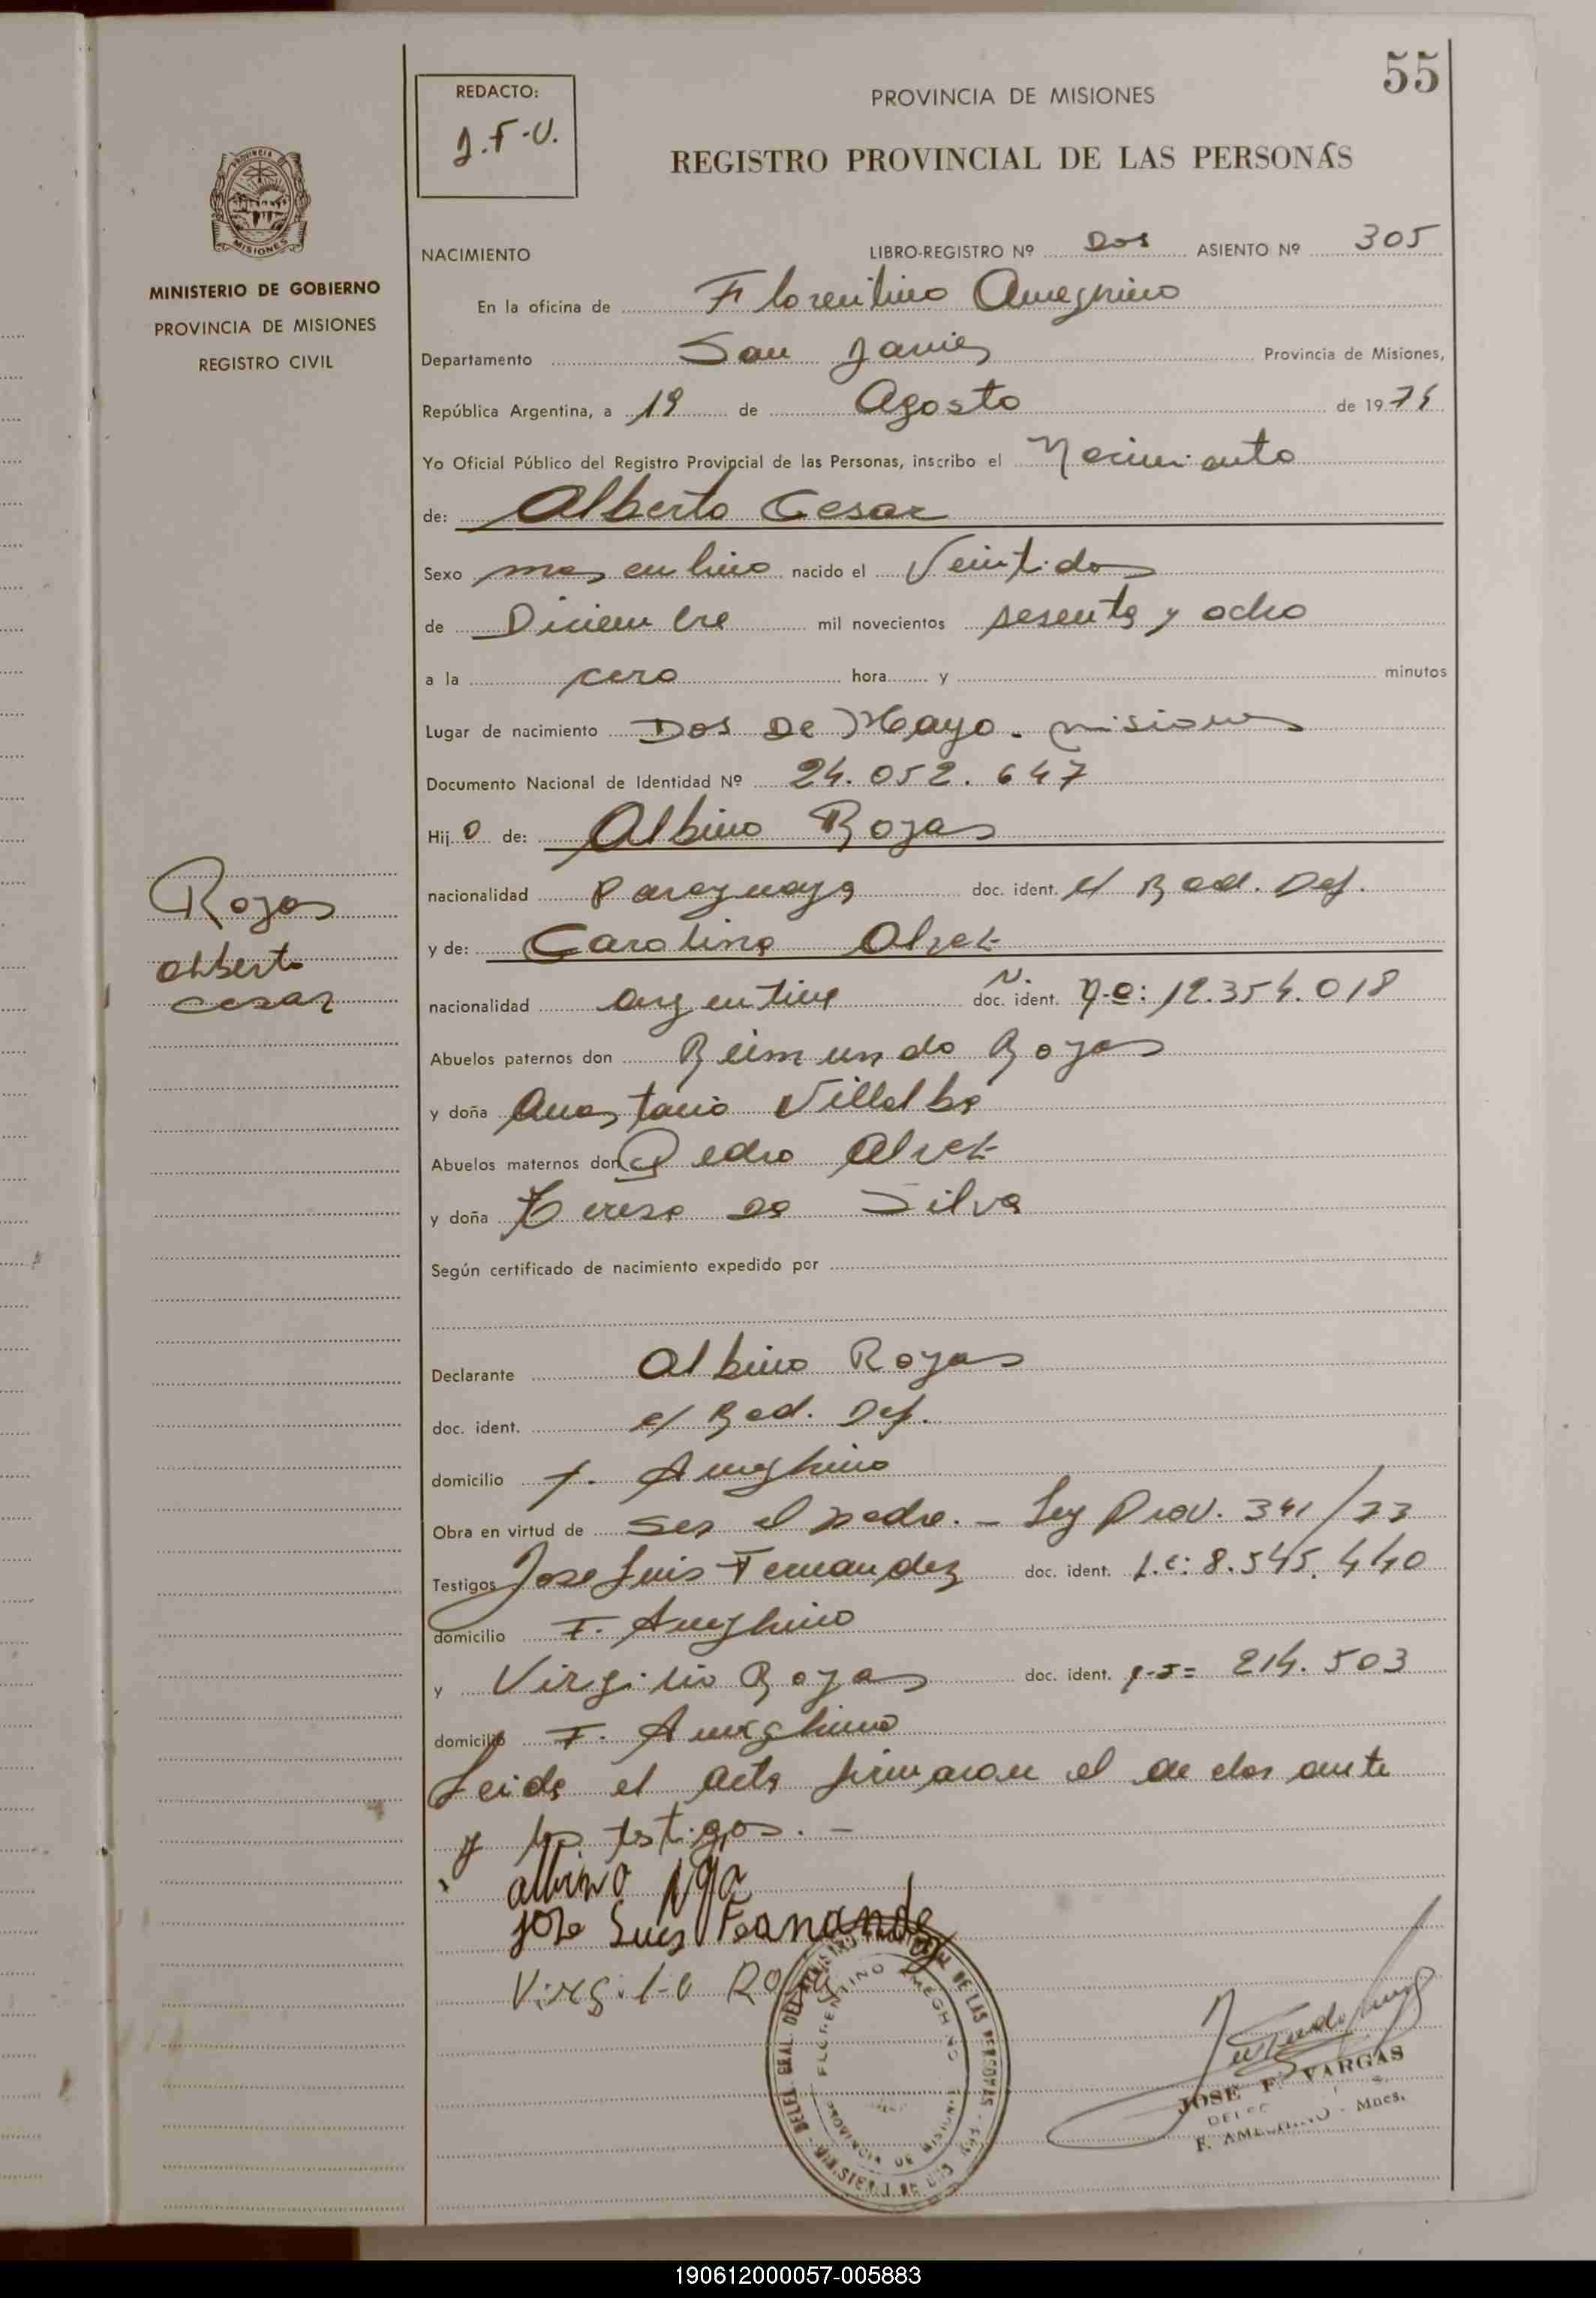 55
REDACTO:
J.F.V.
PROVINCIA DE MISIONES
REGISTRO PROVINCIAL DE LAS PERSONAS
MINISTERIO DE GOBIERNO
PROVINCIA DE MISIONES
REGISTRO CIVIL
NACIMIENTO LIBRO-REGISTRO Nº Dos ASIENTO Nº 305
En la oficina de Florentino Ameghino
Departamento San Javier Provincia de Misiones,
República Argentina, a 19 de Agosto de 19 74
Yo Oficial Público del Registro Provincial de las Personas, inscribo el Nacimiento
de: Alberto Cesar
Sexo masculino nacido el Veintidos
de Diciembre mil novecientos sesenta y ocho
a la cero hora y minutos
Lugar de nacimiento Dos De Mayo - Misiones
Documento Nacional de Identidad Nº 24.052.647
Hij o de: Albino Rojas
nacionalidad Paraguaya doc. ident. c/ Rad. Def.
y de: Carolina Alvez
nacionalidad argentina doc. ident. 12.354.018
Rojas
Alberto
Cesar
Abuelos paternos don Reimundo Rojas
y doña Anastacia Villalba
Abuelos maternos don Pedro Alvez
y doña Teresa Da Silva
Según certificado de nacimiento expedido por
Declarante Albino Rojas
doc. ident. c/ Rad. Def.
domicilio F. Ameghino
Obra en virtud de ser el padre. - Ley Prov. 341/73
Testigos Jose Luis Fernandez doc. ident. L.E: 8.545.440
domicilio F. Ameghino
y Virgilio Rojas doc. ident. 214.503
domicilio F. Ameghino
Leida el acta firmaron el declarante
y los testigos. -
albino
Jose Luis Fernandez
Virgilio Rojas
FLORENTINO AMEGHINO
PROVINCIA DE MISIONES
JOSE F. VARGAS
F. AMEGHINO - Mnes.
190612000057-005883